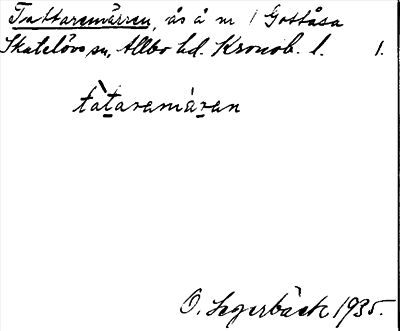 Tattaremärren, ås å nr 1 Gottåsa
Skatelövs sn, Allbo hd. Kronob. l. 1.
tàtaremäran
O. Segerbäck 1935.